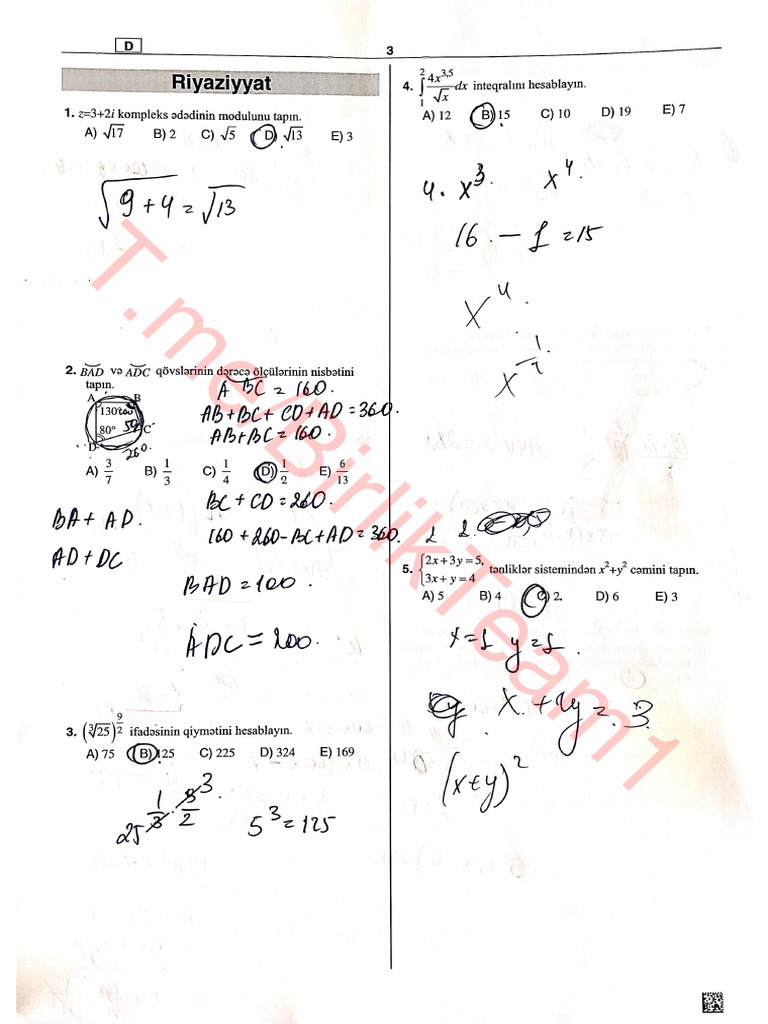 D
3
Riyaziyyat
1. z=3+2i kompleks ədədinin modulunu tapın.
A) √17 B) 2 C) √5 D) √13 E) 3
√9+4 = √13
2. BAD və ADC qövslərinin dərəcə ölçülərinin nisbətini
tapın.
A B
130°
80° C
D
260
A) 3/7 B) 1/3 C) 1/4 D) 1/2 E) 6/13
ABC = 160.
AB+BC+CD+AD=360.
AB+BC=160.
BC+CD=260.
160+260-BC+AD=360.
BA+AD.
AD+DC
BAD=100.
ADC=200.
3. (∛25)^(9/2) ifadəsinin qiymətini hesablayın.
A) 75 B) 125 C) 225 D) 324 E) 169
5³=125
4. ∫₁² 4x^3,5/√x dx inteqralını hesablayın.
A) 12 B) 15 C) 10 D) 19 E) 7
4. x³. x⁴.
16. - 1 = 15
x⁴.
5. {2x+3y=5, 3x+y=4 tənliklər sistemindən x²+y² cəmini tapın.
A) 5 B) 4 C) 2. D) 6 E) 3
x=1 y=1.
x+2y=.3.
(x+y)²
T.me/BirlikTeam1